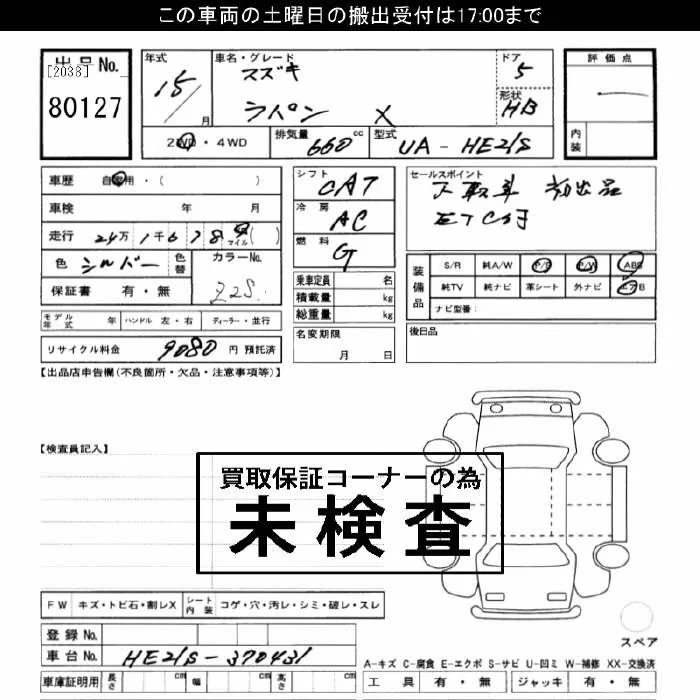 この車両の土曜日の搬出受付は17:00まで
出品No.
[2038]
80127
年式 15/ 月
車名・グレード
スズキ
ラパン X
ドア 5
形状 HB
2WD・4WD
排気量 660 cc
型式 UA-HE21S
評価点
内装
車歴 自家用・( )
車検 年 月
走行 24万1千678 km マイル( )
色 シルバー 色替
カラーNo. Z2S
保証書 有・無
シフト CAT
冷房 AC
燃料 G
乗車定員 名
積載量 kg
総重量 kg
セールスポイント
下取車 初出品
ETC付
装備品
S/R 純A/W P/S P/W ABS
純TV 純ナビ 革シート 外ナビ エアB
ナビ型番:
モデル年式 年 ハンドル 左・右 ディーラー・並行
名変期限
月 日
後日品
リサイクル料金 9080 円 預託済
【出品店申告欄(不良箇所・欠品・注意事項等)】
【検査員記入】
買取保証コーナーの為
未検査
FW キズ・トビ石・割レX シート内装 コゲ・穴・汚レ・シミ・破レ・スレ
登録No.
車台No. HE21S-370431
車庫証明用 長さ cm 幅 cm 高さ cm
スペア
A-キズ C-腐食 E-エクボ S-サビ U-凹ミ W-補修 XX-交換済
工具 有・無 ジャッキ 有・無